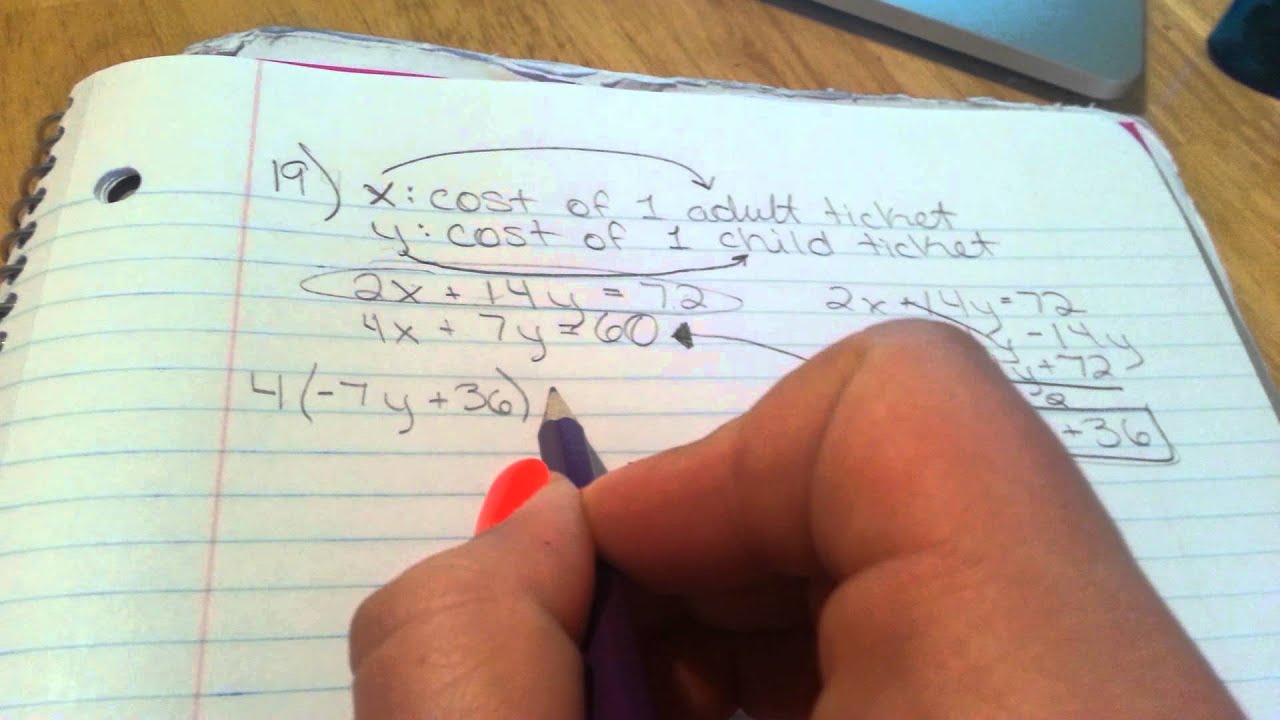 19) x: cost of 1 adult ticket
y: cost of 1 child ticket
2x + 14y = 72
4x + 7y = 60
4(-7y + 36)
2x + 14y = 72
y - 14y
y + 72
2
+ 36